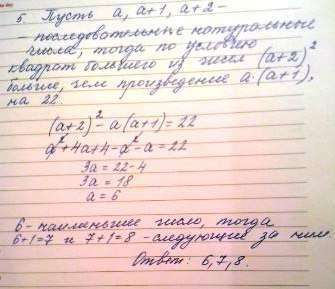 5. Пусть a, a+1, a+2 –
– последовательные натуральные
числа, тогда по условию
квадрат большего из чисел (a+2)²
больше, чем произведение a·(a+1),
на 22.
(a+2)² - a(a+1) = 22
a²+4a+4-a²-a=22
3a = 22-4
3a = 18
a = 6
6- наименьшее число, тогда
6+1=7 и 7+1=8 - следующие за ним.
Ответ: 6,7,8.